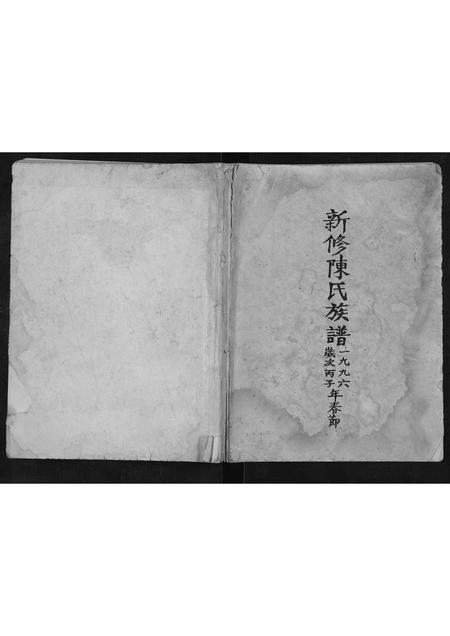 新修陳氏族譜
一九九六
歲次丙子年春節